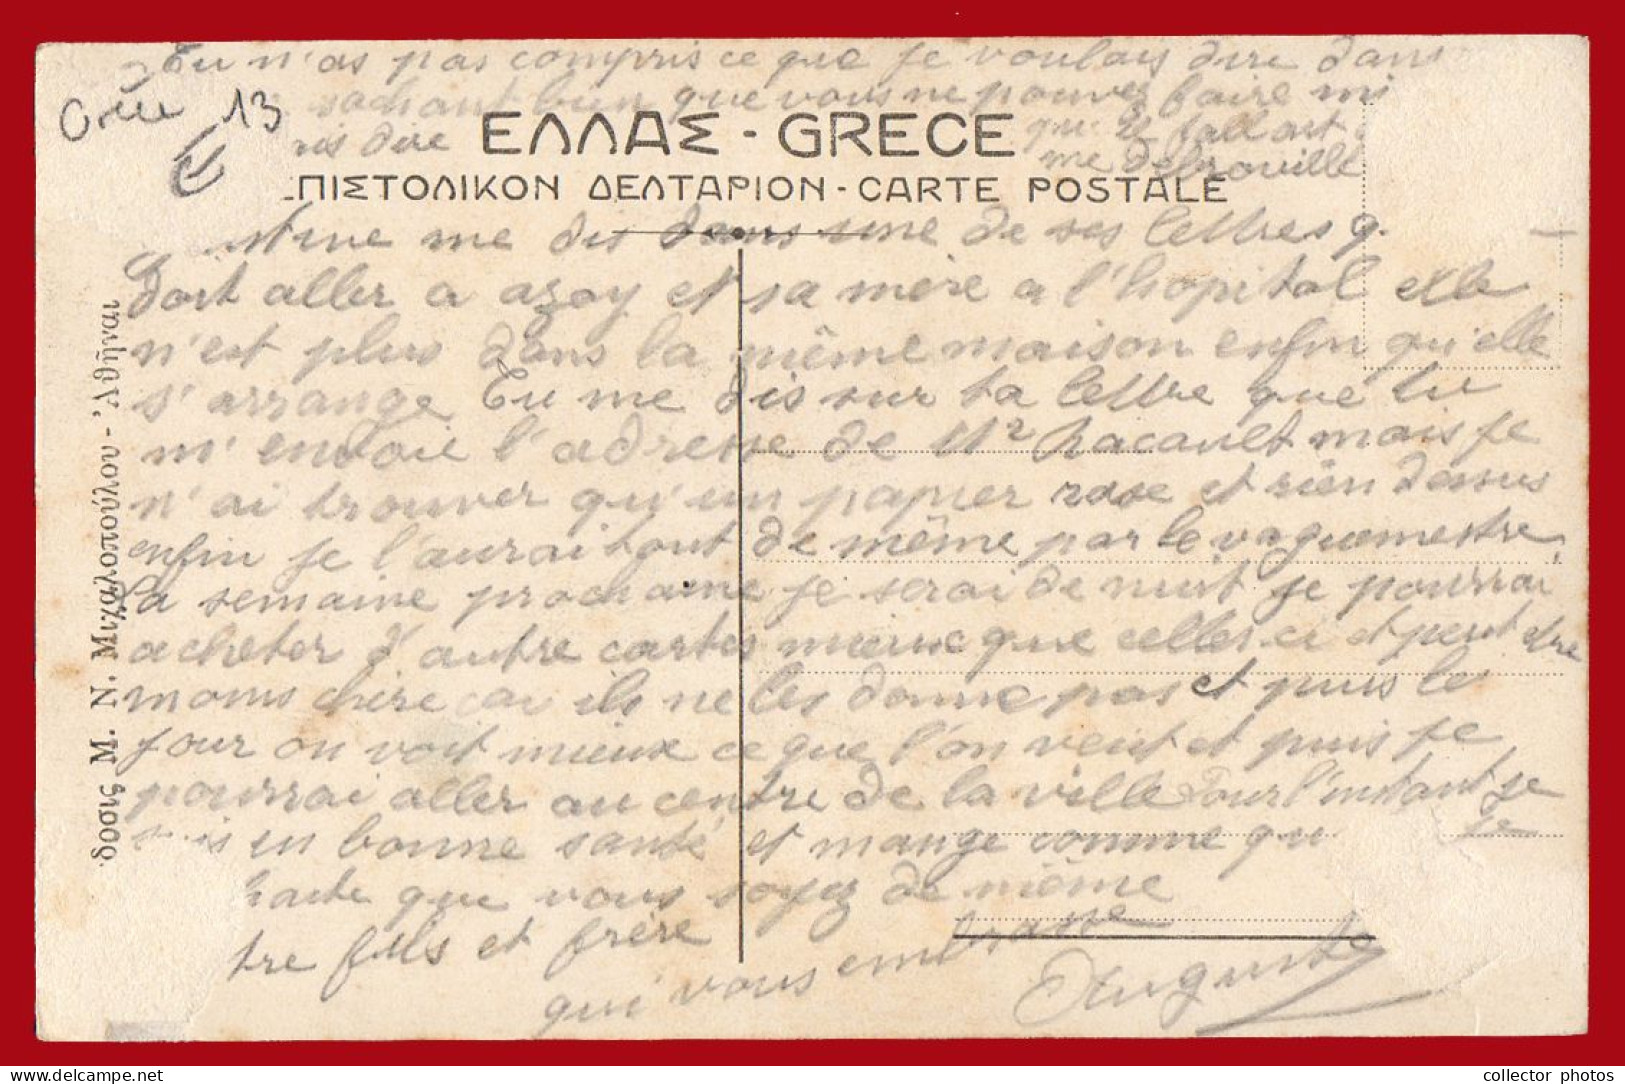 Tu n'as pas compris ce que je voulais dire dans
sachant bien que vous ne pouvez faire mi
dire
qu le fallait
me debrouille
Grèce 13
E
ΕΛΛΑΣ - GRECE
ΕΠΙΣΤΟΛΙΚΟΝ ΔΕΛΤΑΡΙΟΝ - CARTE POSTALE
me dis dans une de ses lettres q
doit aller a azay et sa mère a l'hopital elle
n'est plus dans la même maison enfin qu'elle
s'arrange Tu me dis sur ta lettre que tu
m'envoie l'adresse de Mr Racault mais je
n'ai trouver qu'un papier rose et rien dessus
enfin je l'aurai tout de même par le vaguemestre,
la semaine prochaine je serai de nuit je pourrai
acheter d'autre cartes mieux que celles ci et peut etre
moins chère car ils ne les donne pas et puis le
jour on voit mieux ce que l'on veut et puis je
pourrai aller au centre de la ville Pour l'instant je
suis en bonne santé et mange comme qu
je
haite que vous soyez de même
tre fils et frère
qui vous embrasse
Auguste
δοσις Μ. Ν. Μιχαλοπούλου - Ἀθῆναι
collector photos
www.delcampe.net